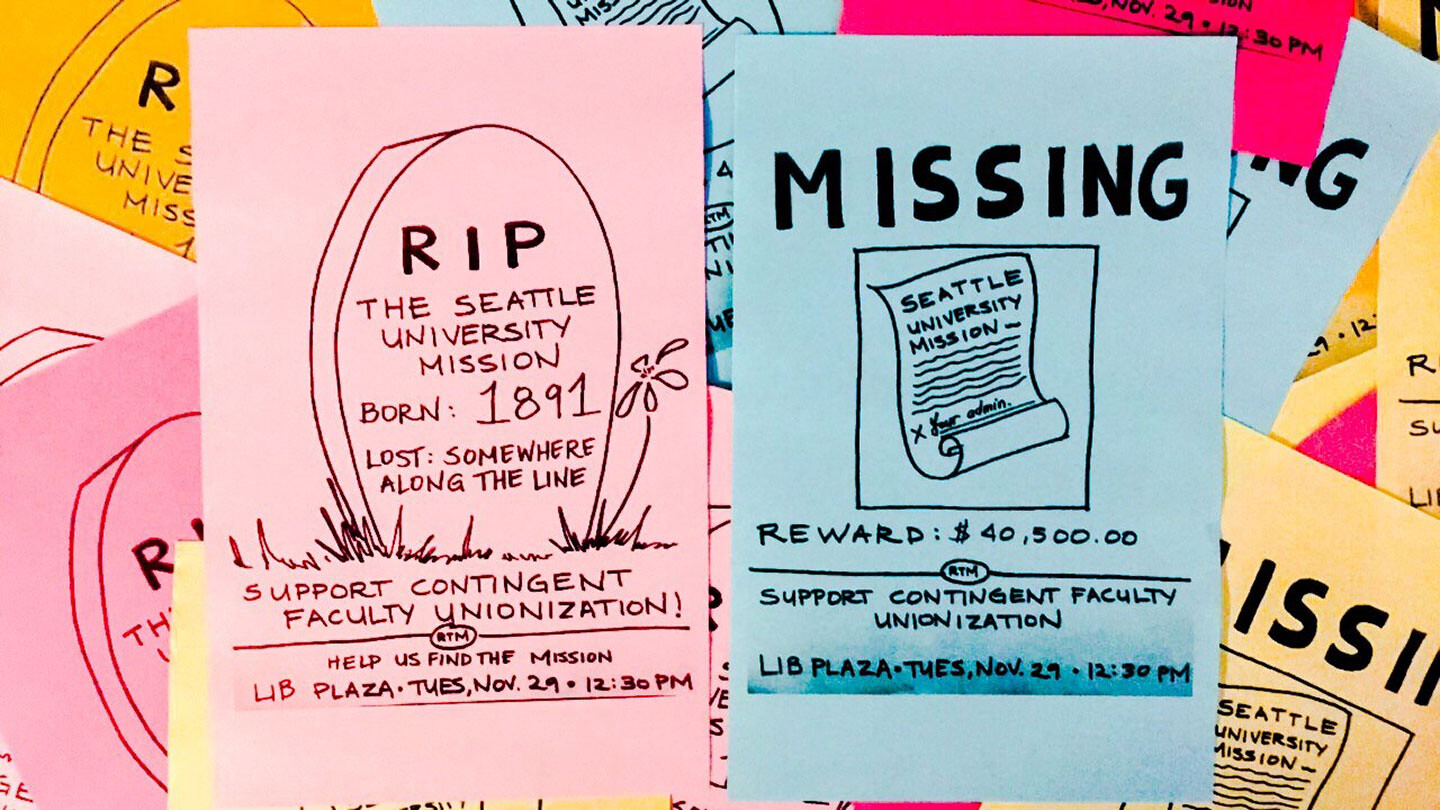 RIP
THE SEATTLE
UNIVERSITY
MISSION
BORN: 1891
LOST: SOMEWHERE
ALONG THE LINE
SUPPORT CONTINGENT
FACULTY UNIONIZATION!
RTM
HELP US FIND THE MISSION
LIB PLAZA • TUES, NOV. 29 • 12:30 PM
MISSING
SEATTLE
UNIVERSITY
MISSION ~
x Your admin.
REWARD: $ 40,500.00
RTM
SUPPORT CONTINGENT FACULTY
UNIONIZATION
LIB PLAZA • TUES, NOV. 29 • 12:30 PM
R
THE S
UNIVE
MISS
NOV. 29 • 12:30 PM
NG
R
TH
ISSI
SEATTLE
UNIVERSITY
MISSION ~